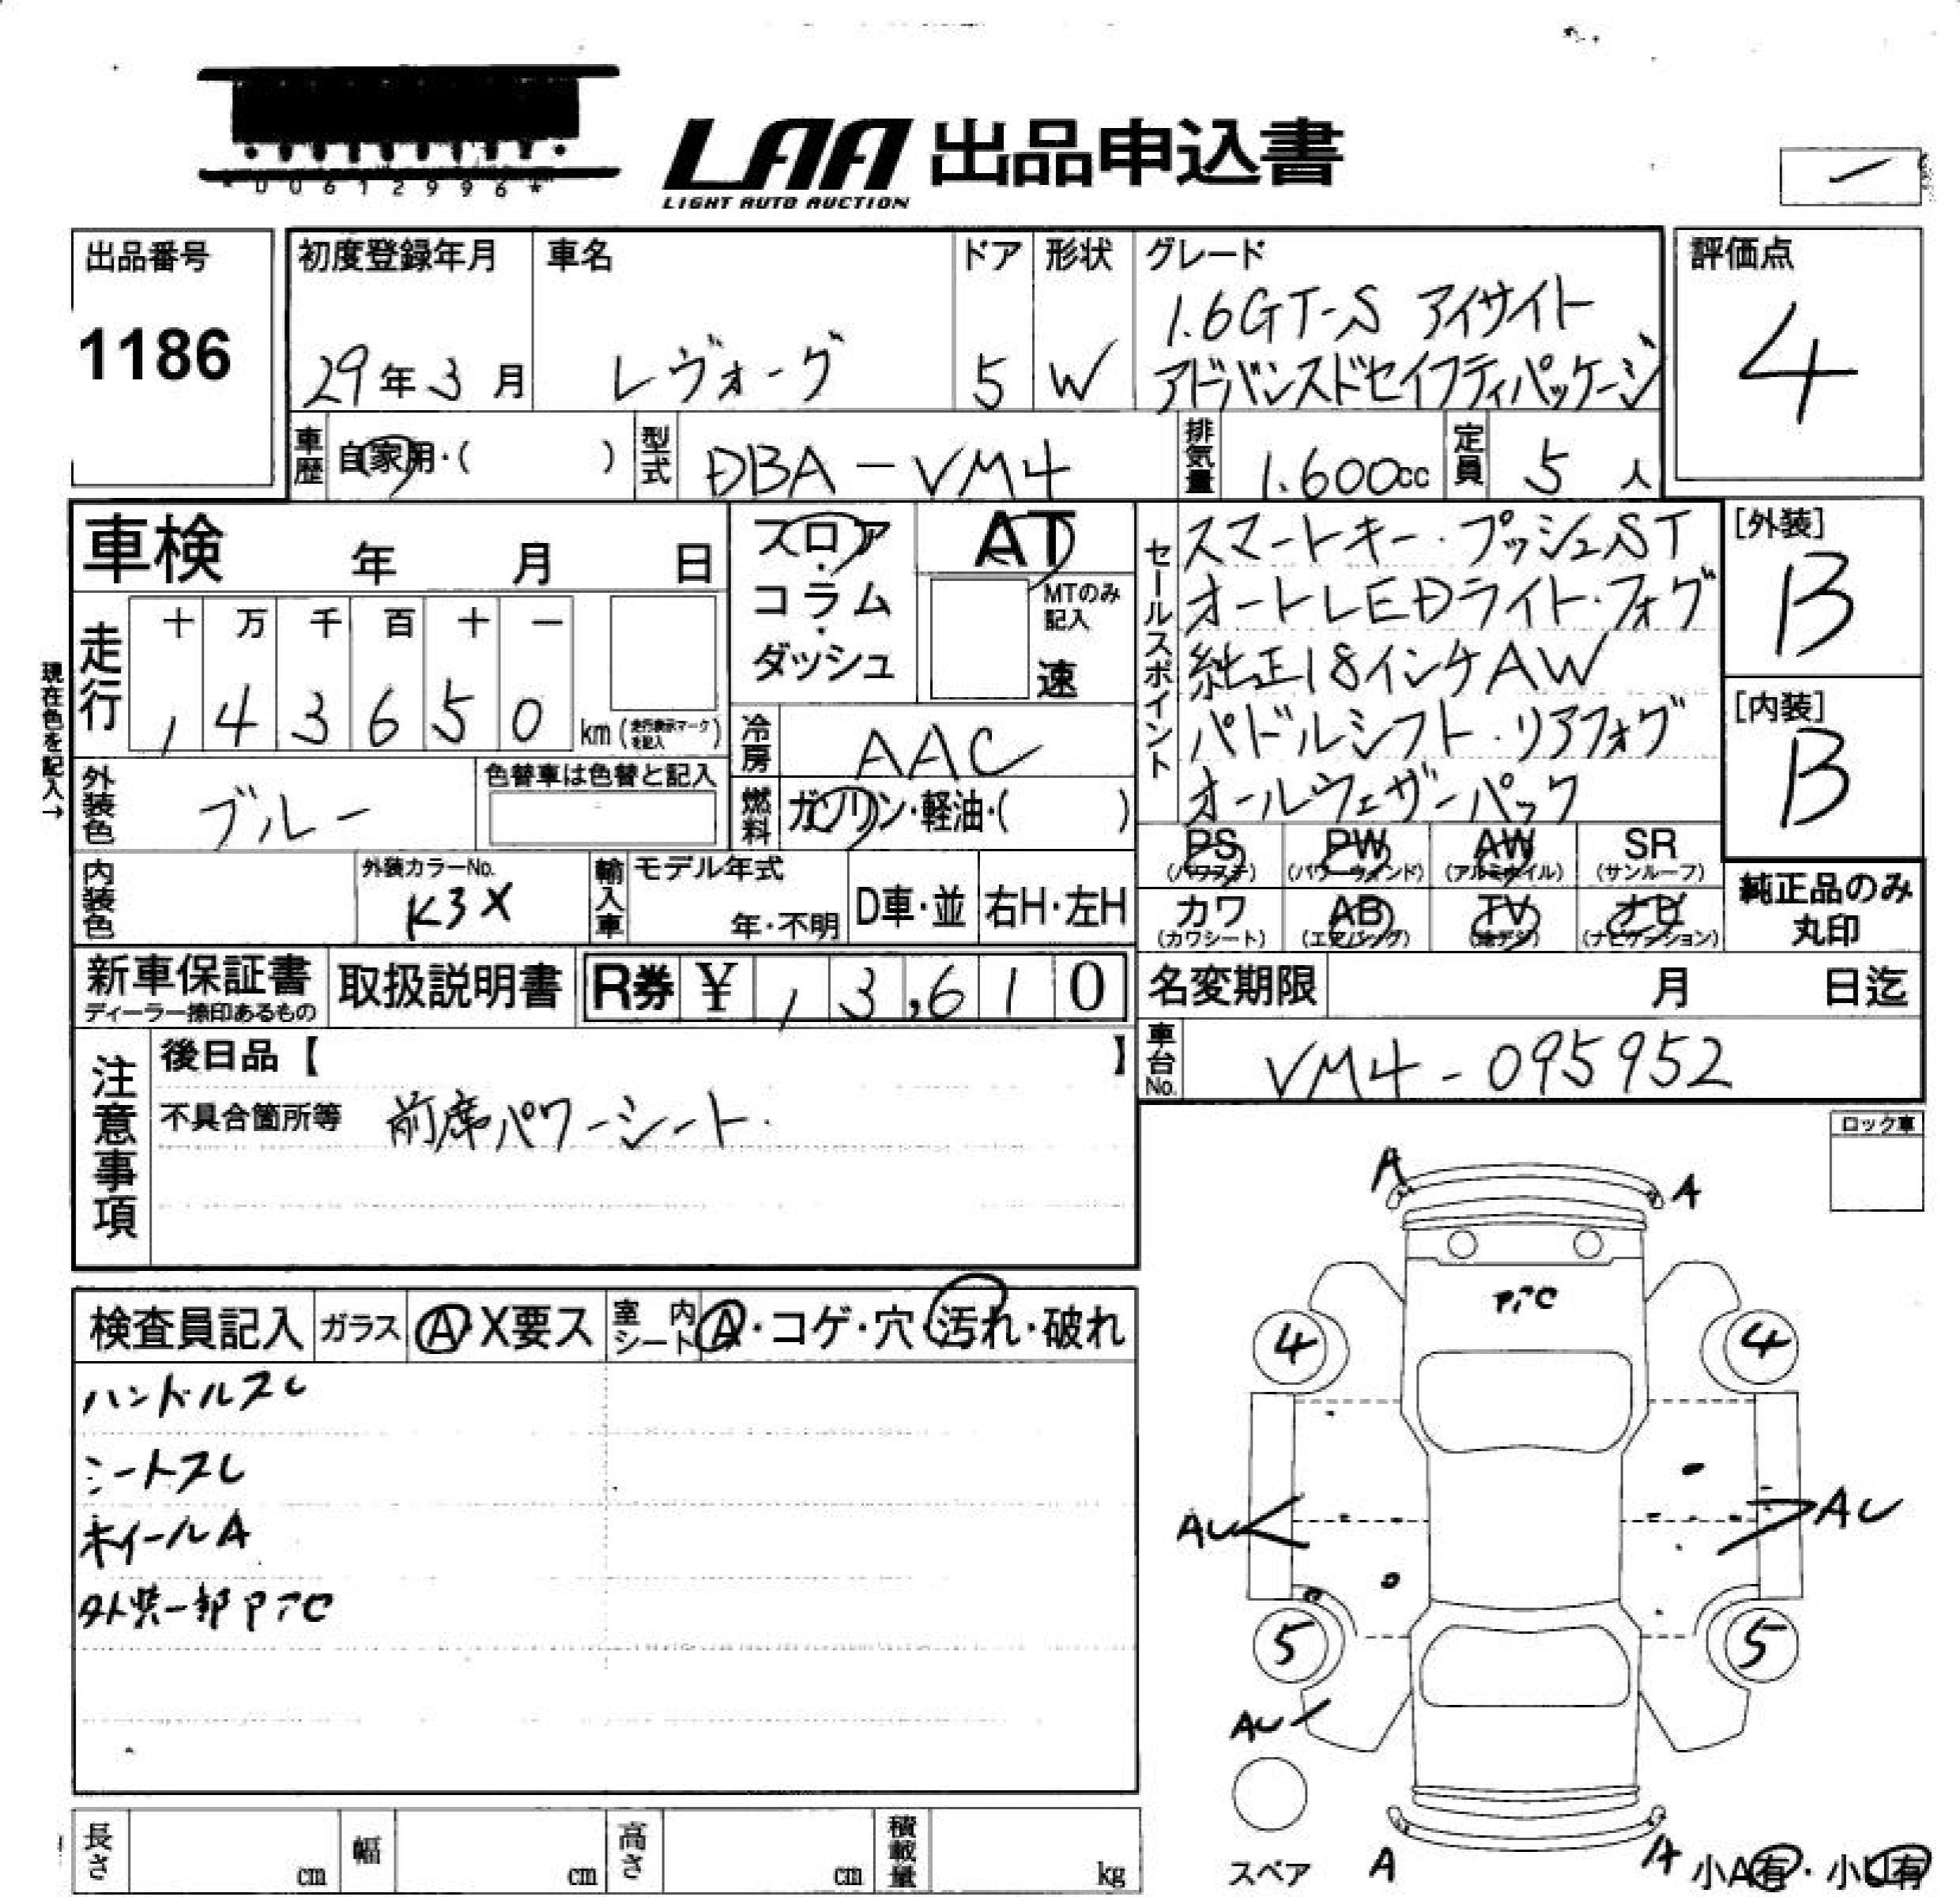 *00612996*
LAA 出品申込書
LIGHT AUTO AUCTION
出品番号
1186
初度登録年月
29年3月
車名
レヴォーグ
ドア
5
形状
W
グレード
1.6GT-S アイサイト
アドバンスドセイフティパッケージ
評価点
4
車歴 自家用・( )
型式 DBA-VM4
排気量 1.600cc
定員 5人
車検 年 月 日
走行
十 万 千 百 十 一
, 4 3 6 5 0 km (走行表示マークを記入)
現在色を記入→
フロア・コラム・ダッシュ
AT
MTのみ記入
速
冷房 AAC
燃料 ガソリン・軽油・( )
外装色 ブルー
色替車は色替と記入
内装色
外装カラーNo.
K3X
輸入車 モデル年式
年・不明
D車・並
右H・左H
セールスポイント
スマートキー・プッシュST
オートLEDライト・フォグ
純正18インチAW
パドルシフト・リアフォグ
オールウェザーパック
[外装]
B
[内装]
B
PS (パワステ)
PW (パワーウインド)
AW (アルミホイル)
SR (サンルーフ)
カワ (カワシート)
AB (エアバッグ)
TV (地デジ)
ナビ (ナビゲーション)
純正品のみ丸印
新車保証書
ディーラー捺印あるもの
取扱説明書
R券 ¥ , 3,610
名変期限 月 日迄
車台No. VM4-095952
注意事項
後日品【 】
不具合箇所等 前席パワーシート.
ロック車
検査員記入 ガラス A・X要ス 室内シート A・コゲ・穴・汚れ・破れ
ハンドルスレ
シートスレ
ホイールA
外装一部PTC
A
A
PTC
4
4
AU
AU
5
5
AU
スペア
A
A
小A有・小U有
長さ cm
幅 cm
高さ cm
積載量 kg